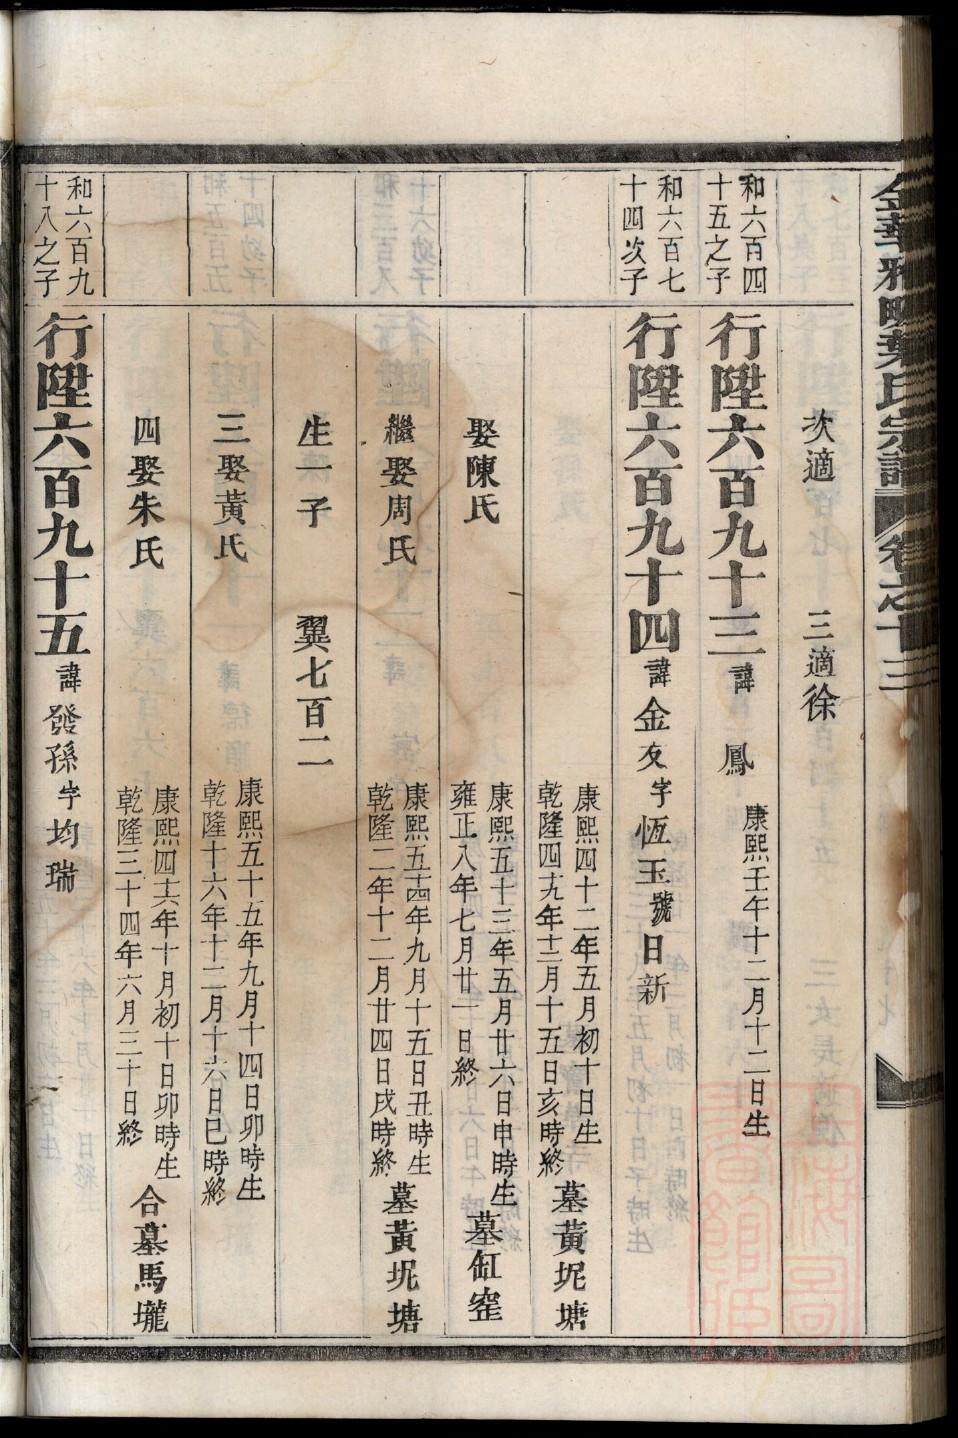 金華雅畈葉氏宗譜 卷之十三
次適 三適徐
和六百四
十五之子
行陞六百九十三 諱 鳳 康熙壬午十二月十二日生
和六百七
十四次子
行陞六百九十四 諱 金友 字 恆玉 號 日新
康熙四十二年五月初十日生
乾隆四十九年十二月十五日亥時終
墓黃坭塘
娶陳氏
康熙五十三年五月廿六日申時生
雍正八年七月廿一日終
墓缸窑
繼娶周氏
康熙五十四年九月十五日丑時生
乾隆二年十二月廿四日戌時終
墓黃坭塘
生一子 翼七百二
三娶黃氏
康熙五十五年九月十四日卯時生
乾隆十六年十二月十六日巳時終
四娶朱氏
康熙四十六年十月初十日卯時生
乾隆三十四年六月三十日終
合墓馬壠
和六百九
十八之子
行陞六百九十五 諱 發孫 字 均瑞